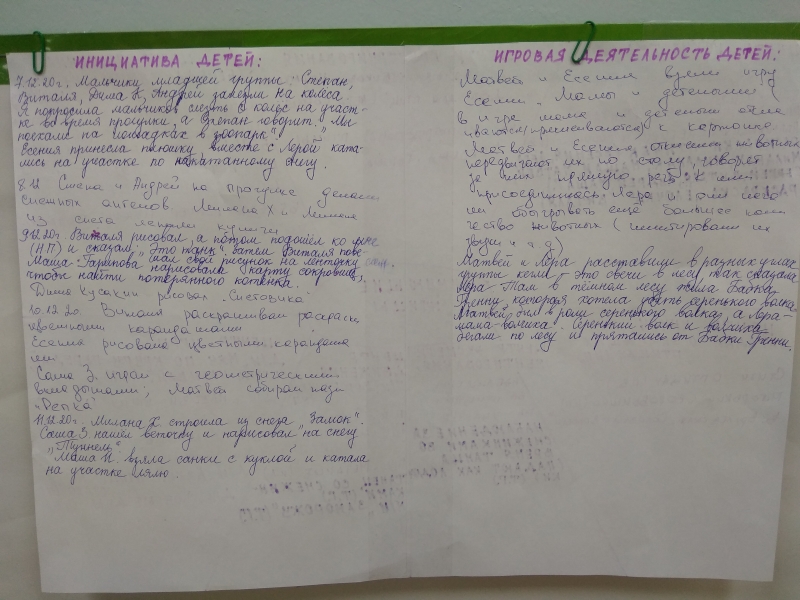 ИНИЦИАТИВА ДЕТЕЙ:
7.12.20г. Мальчики младшей группы: Степан,
Виталя, Дима К, Андрей залезли на колёса,
Я попросила мальчиков слезть с колёс на участ-
ке во время прогулки, а Степан говорит "Мы
поехали на лошадках в зоопарк".
Есения принесла вместе с Лерой ката-
лись на участке по накатанному снегу.
8.12 Степа и Андрей на прогулке делали
снежных ангелов Милана Х и Милана
из снега лепили куличи
9.12.20г. Виталя рисовал, а потом подошёл ко мне
(НП) и сказал "Это танк", затем Виталя пове-
сил свой рисунок на ленточку
Маша Гарипова нарисовала карту сокровищ,
чтобы найти потерянного котёнка.
Дима Кусакин рисовал Снеговика
10.12.20. Виталя раскрашивал раскраску
цветными карандашами
Есения рисовала цветными карандаша
ми
Саша З. играл с геометрическими
вкладышами; Матвей собирал пазл
"Репка"
11.12.20г. Милана Х. строила из снега "Замок".
Саша З. нашёл веточку и нарисовал на снегу
"Туннель"
Маша взяла санки с куклой и катала
на участке лялю.
ИГРОВАЯ ДЕЯТЕЛЬНОСТЬ ДЕТЕЙ:
Матвей и Есения игру
Есения. Мамы и детеныши (
в игре мама и детеныш
) к картошке
Матвей и Есения животных
передвигают их по столу, говорят
за них прямую речь. К ним
присоединилась Лера и они
ли обыгрывать ещё большее коли
чество животных (имитировали их
звуки и т д)
Матвей и Лера расставише в разных углах
группы кегли - это овечки в лесу, так сказала
Лера. Там в тёмном лесу жила Бабка
Гренни, которая хотела убить серенького волка.
Матвей был в роли серенького волка, а Лера-
мама-волчиха. Серенький волк и волчиха
бегали по лесу и прятались от Бабки Гренни.